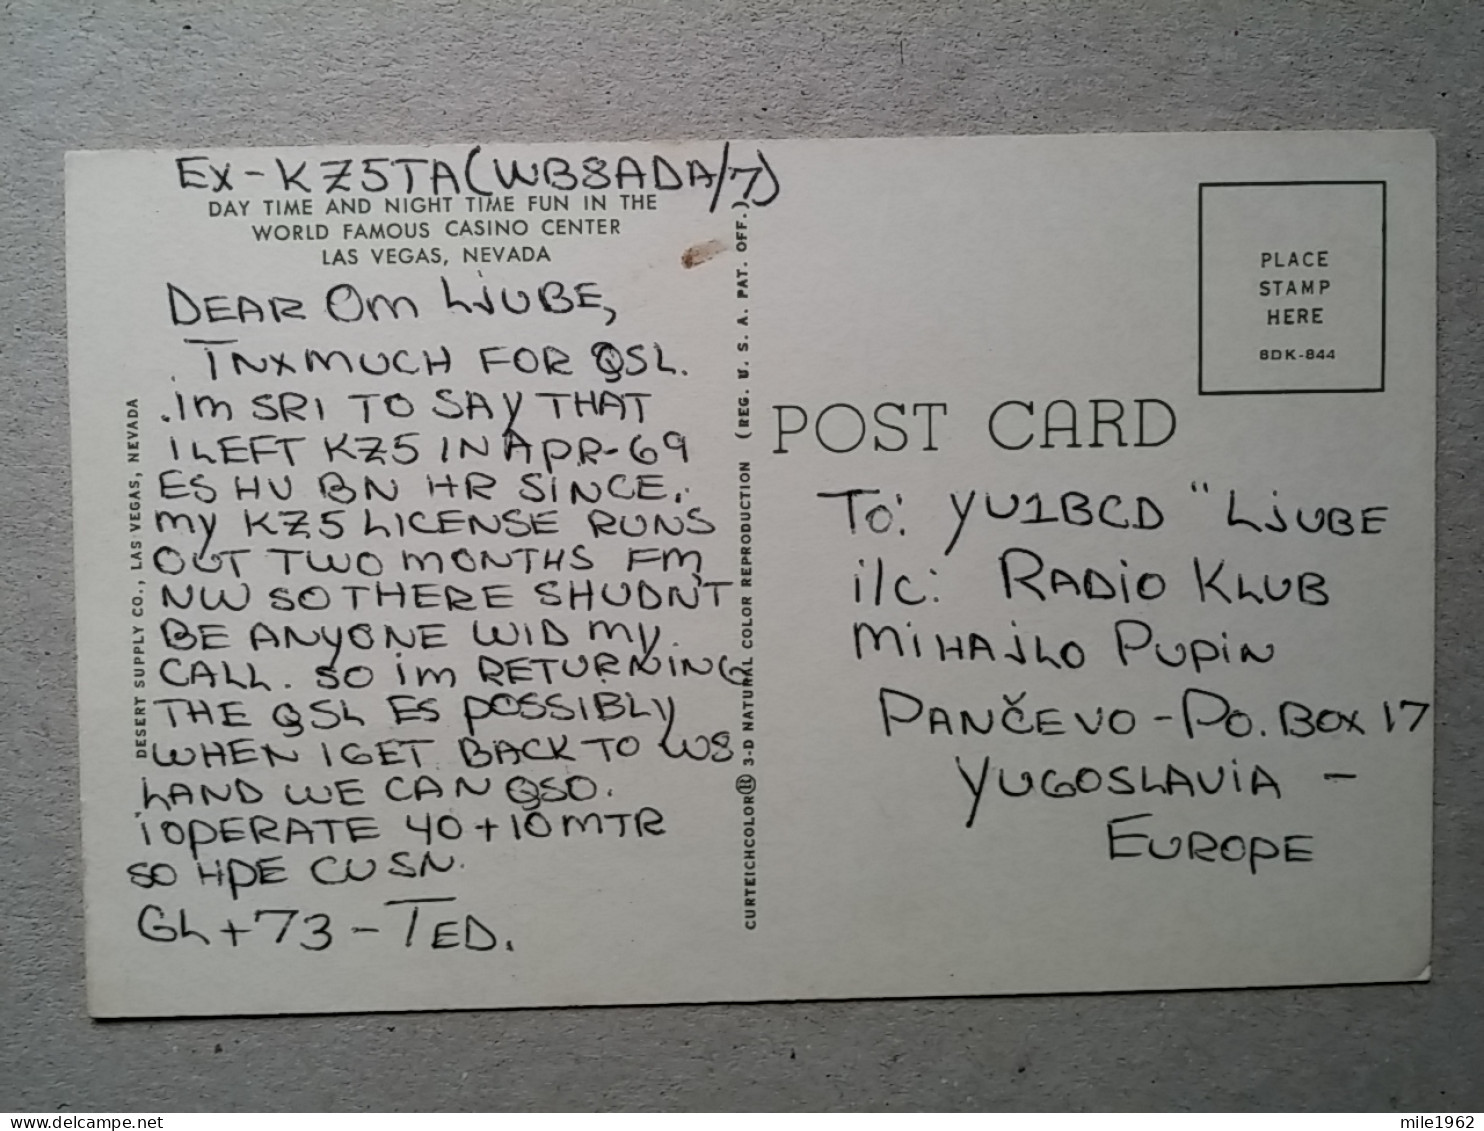 EX-KZ5TA(WB8ADA/7)
DAY TIME AND NIGHT TIME FUN IN THE
WORLD FAMOUS CASINO CENTER
LAS VEGAS, NEVADA
DEAR OM LJUBE,
TNX MUCH FOR QSL.
IM SRI TO SAY THAT
I LEFT KZ5 IN APR-69
ES HV BN HR SINCE.
MY KZ5 LICENSE RUNS
OUT TWO MONTHS FM
NW SO THERE SHUDN'T
BE ANYONE WID MY
CALL. SO IM RETURNING
THE QSL ES POSSIBLY
WHEN I GET BACK TO W8
LAND WE CAN QSO.
I OPERATE 40+10 MTR
SO HPE CU SN.
GL+73-TED.
DESERT SUPPLY CO., LAS VEGAS, NEVADA
CURTEICHCOLOR® 3-D NATURAL COLOR REPRODUCTION (REG. U. S. A. PAT. OFF.)
PLACE
STAMP
HERE
8DK-844
POST CARD
To: YU1BCD "LJUBE
i/c: RADIO KLUB
MIHAJLO PUPIN
PANČEVO-PO. BOX 17
YUGOSLAVIA -
EUROPE
mile1962